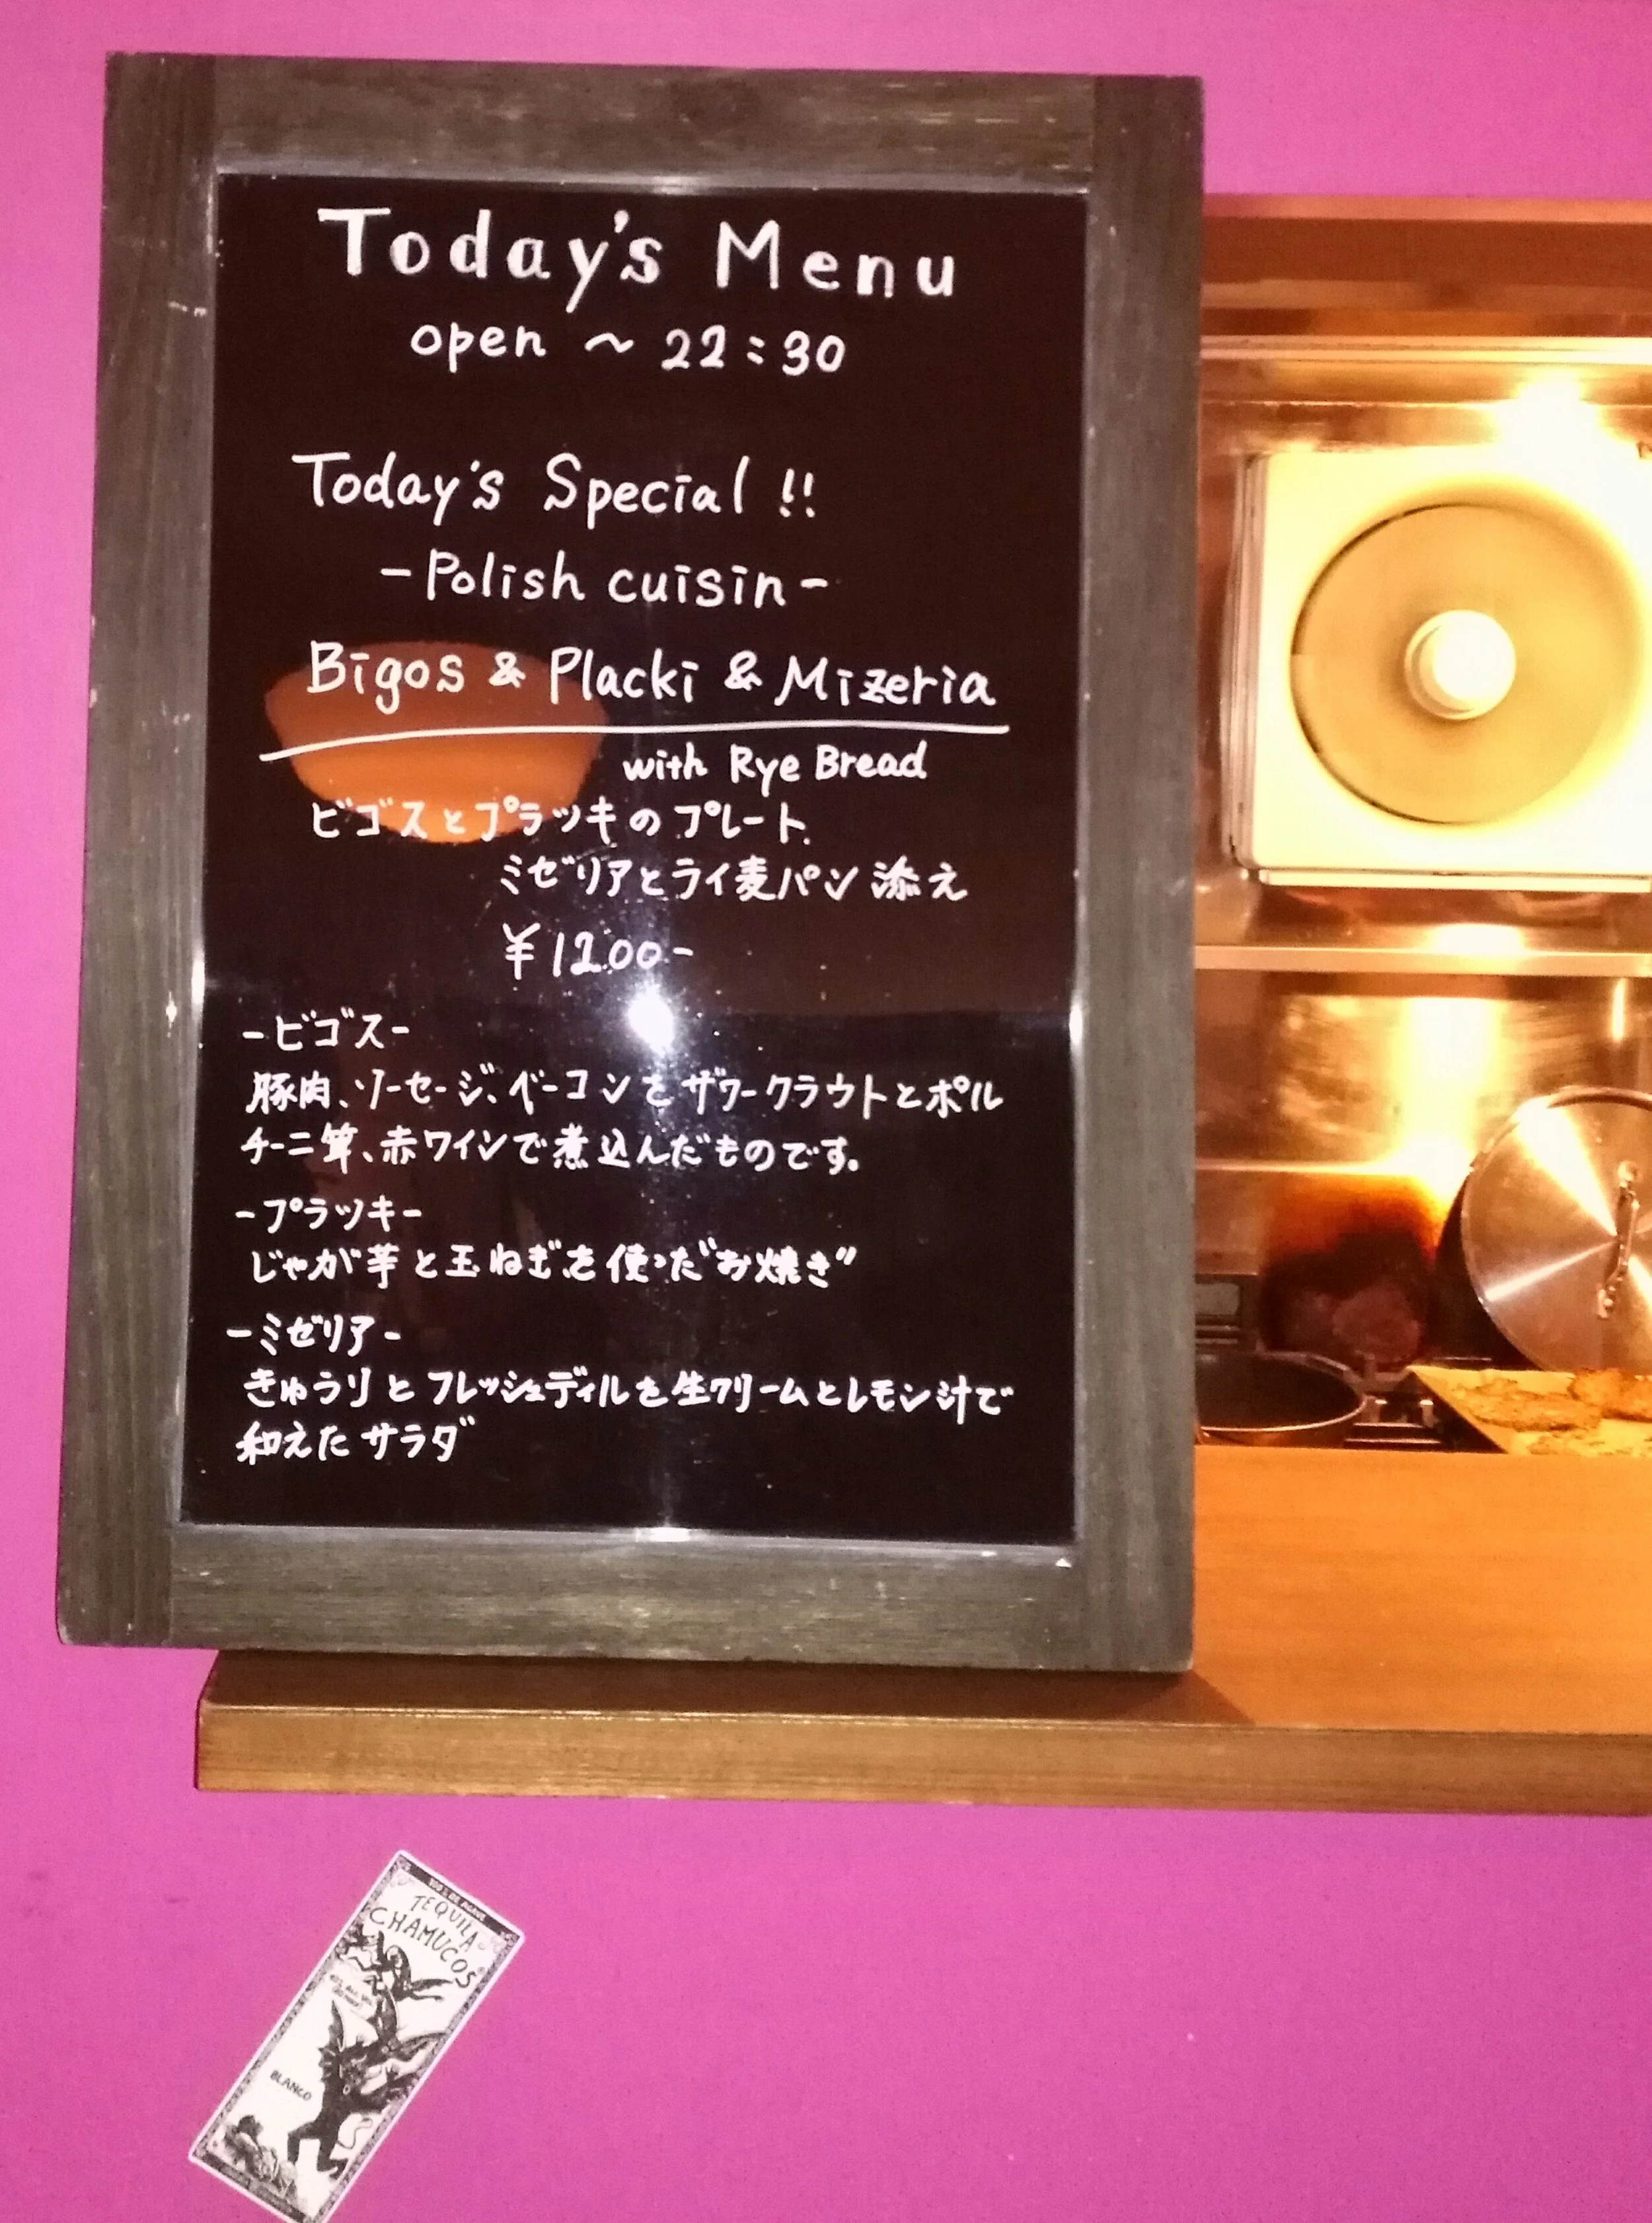 Today's Menu
open ～ 22:30
Today's Special !!
-Polish cuisin-
Bigos & Placki & Mizeria
with Rye Bread
ビゴスとプラッキのプレート
ミゼリアとライ麦パン添え
¥1200-
-ビゴス-
豚肉、ソーセージ、ベーコンをザワークラウトとポル
チーニ茸、赤ワインで煮込んだものです。
-プラッキ-
じゃが芋と玉ねぎを使った"お焼き"
-ミゼリア-
きゅうりとフレッシュディルを生クリームとレモン汁で
和えたサラダ
100% DE AGAVE
TEQUILA
CHAMUCOS
BLANCO